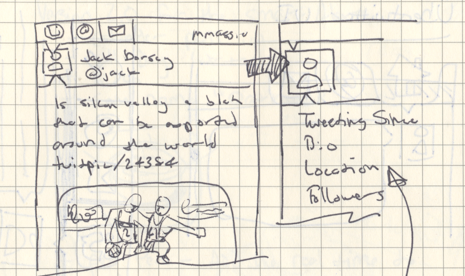 Jack Dorsey
@jack
Is silicon valley a bleh
that can be exported
around the world
twitpic/24354
Tweeting Since
Bio
Location
Followers